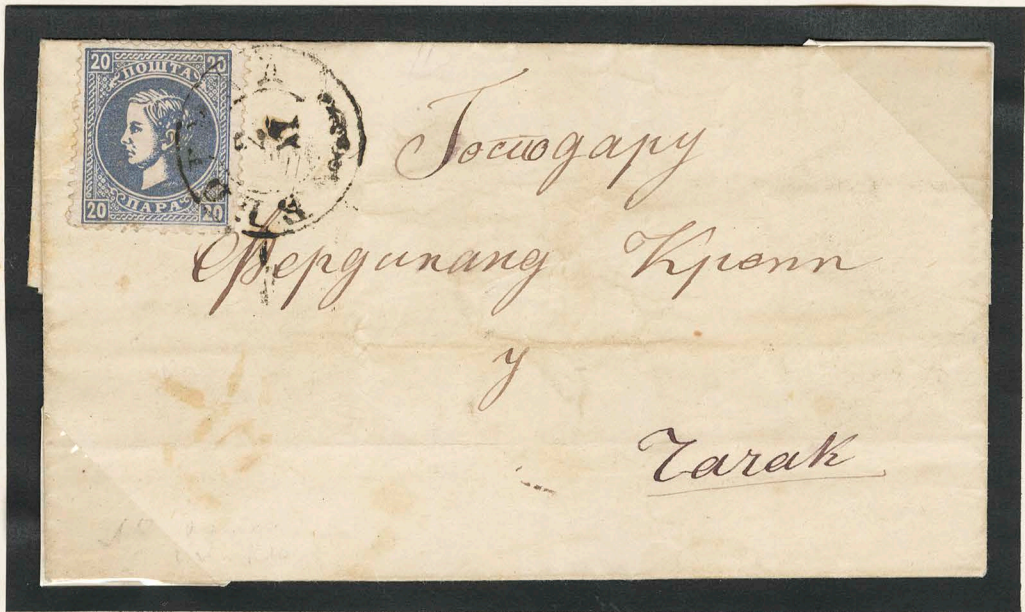 20 20
ПОШТА
ПАРА
20 20
Господару
Фердинанд Крепп
у
Чачак